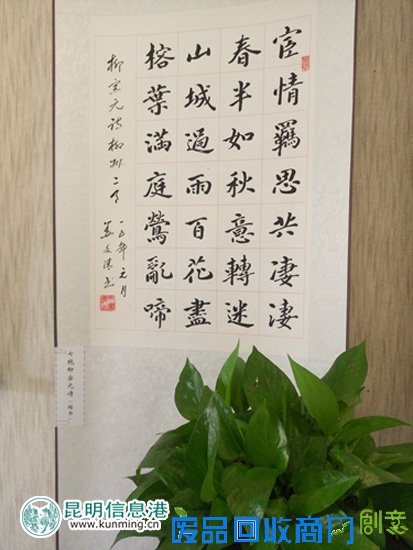 宦情羈思共淒淒
春半如秋意轉迷
山城過雨百花盡
榕葉滿庭鶯亂啼
柳宗元詩柳州二月
一五年元月
七绝柳宗元诗（楷书）
昆明信息港
www.kunming.cn
废品回收商门
创意